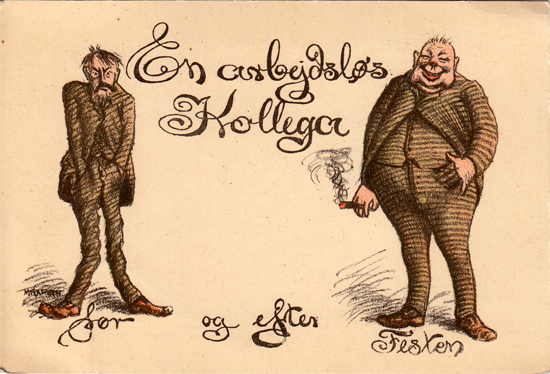 En arbejdsløs
Kollega
før og efter Festen